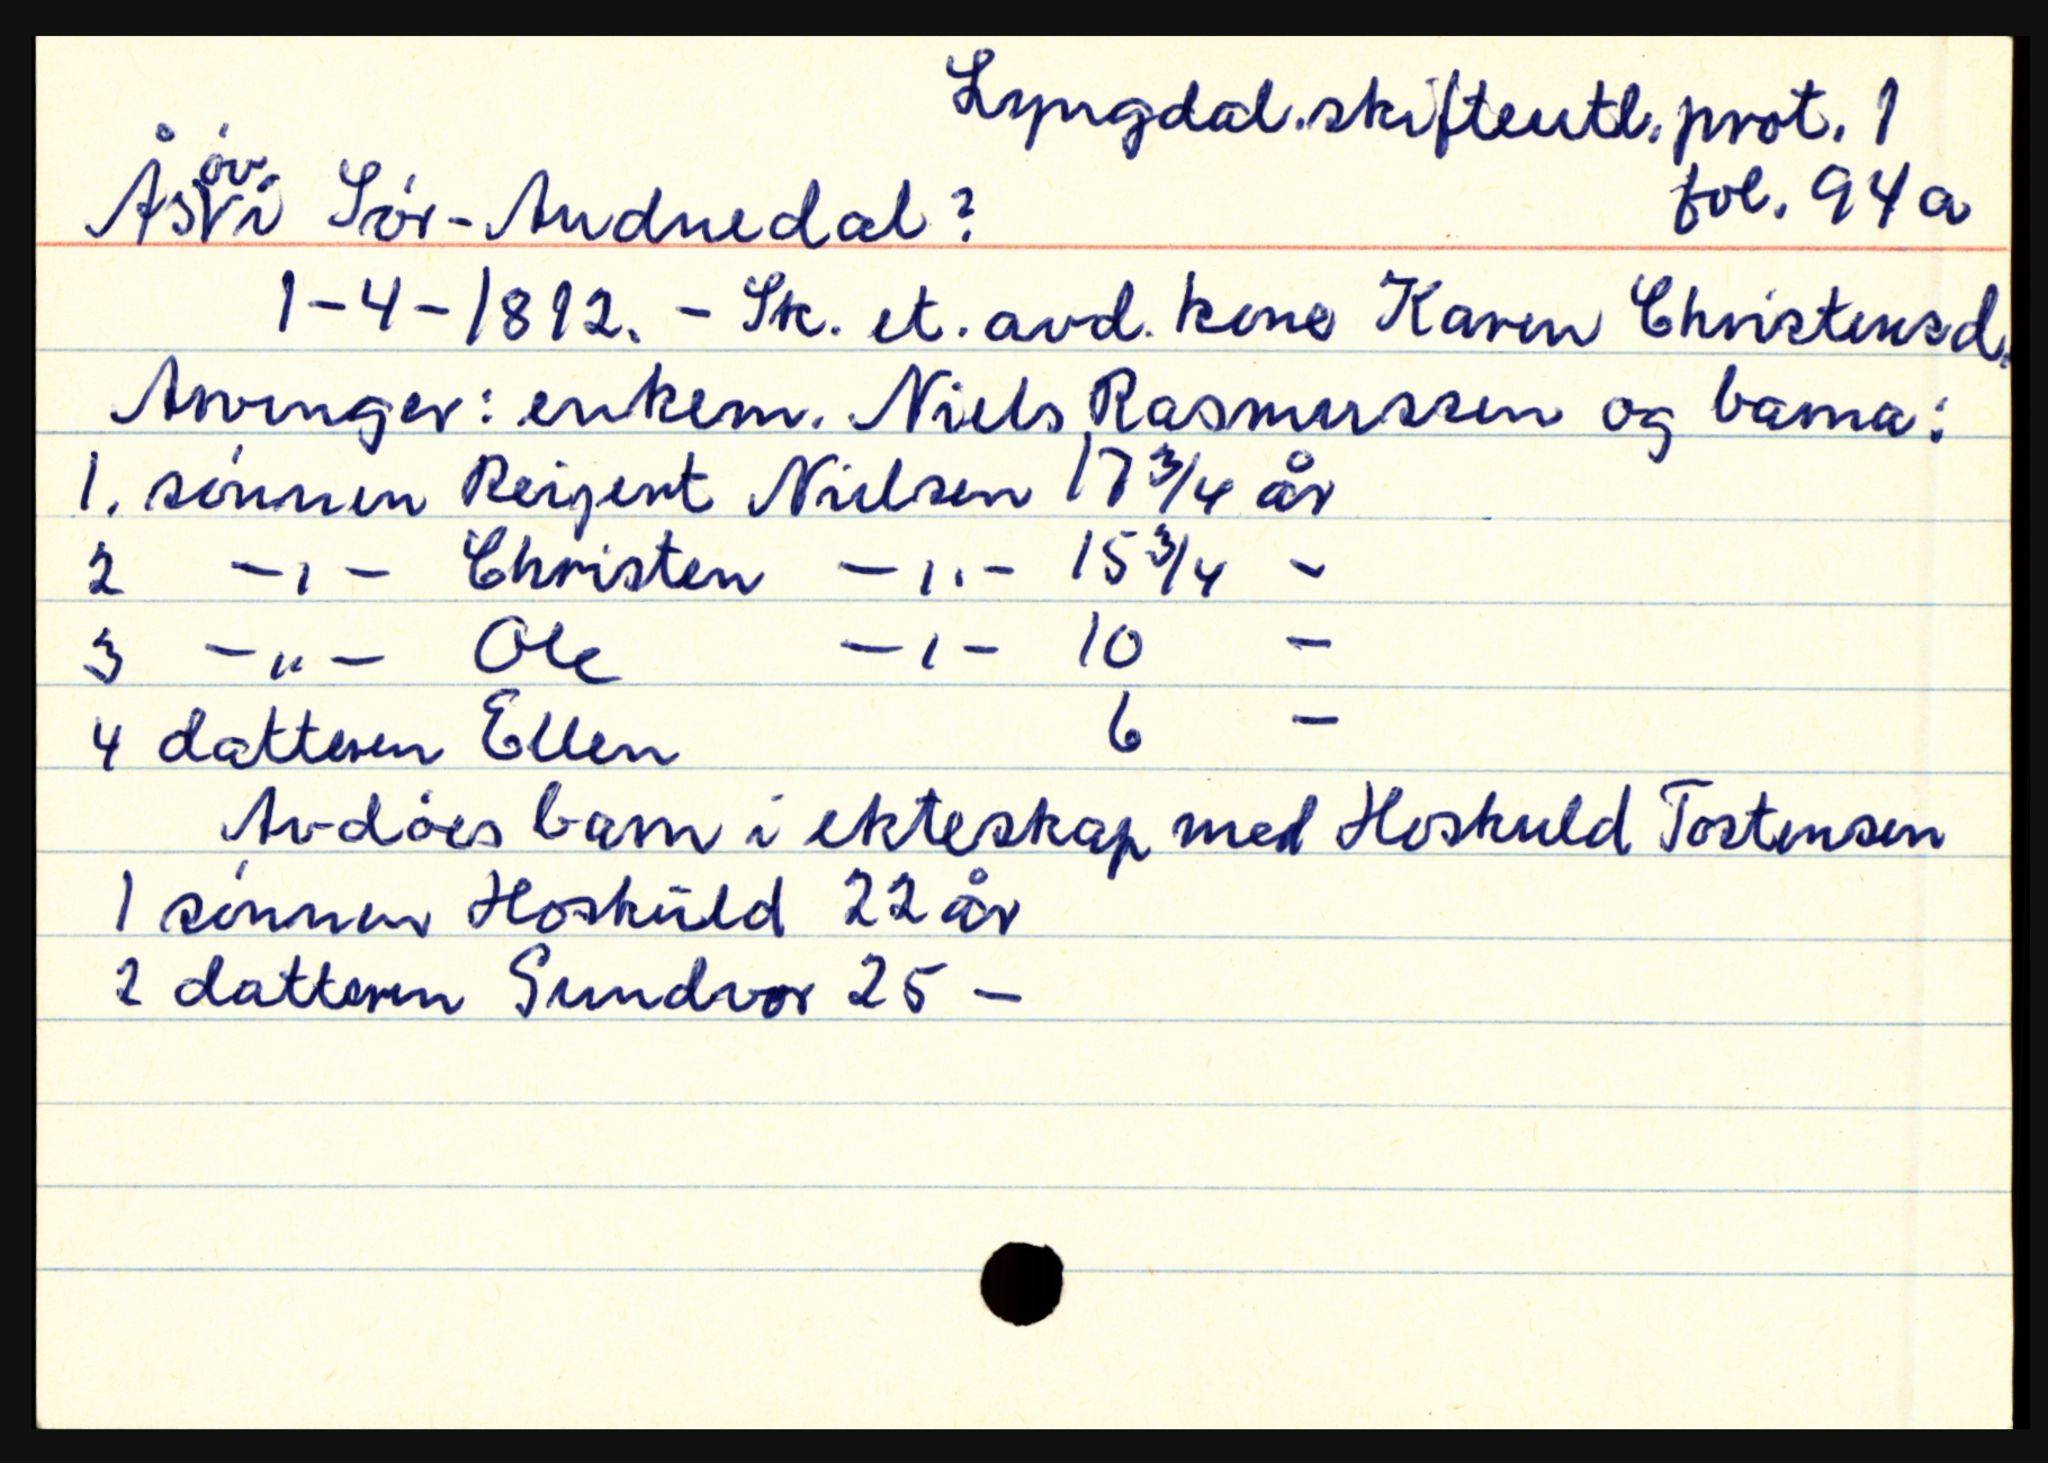 Lyngdal.skifteutl.prot. 1
Ås øv. i Sør-Audnedal? fol. 94a
1-4-1812. - Sk. et. avd. kone Karen Christensd.
Arvinger: enkem. Niels Rasmussen og barna:
1. sønnen Reigert Nielsen 17 3/4 år
2 -,- Christen -,,- 15 3/4 -
3 -"- Ole -,- 10 -
4 datteren Ellen 6 -
Avdøes barn i ekteskap med Hoskuld Tostensen
1 sønnen Hoskuld 22 år
2 datteren Gundvor 25 -